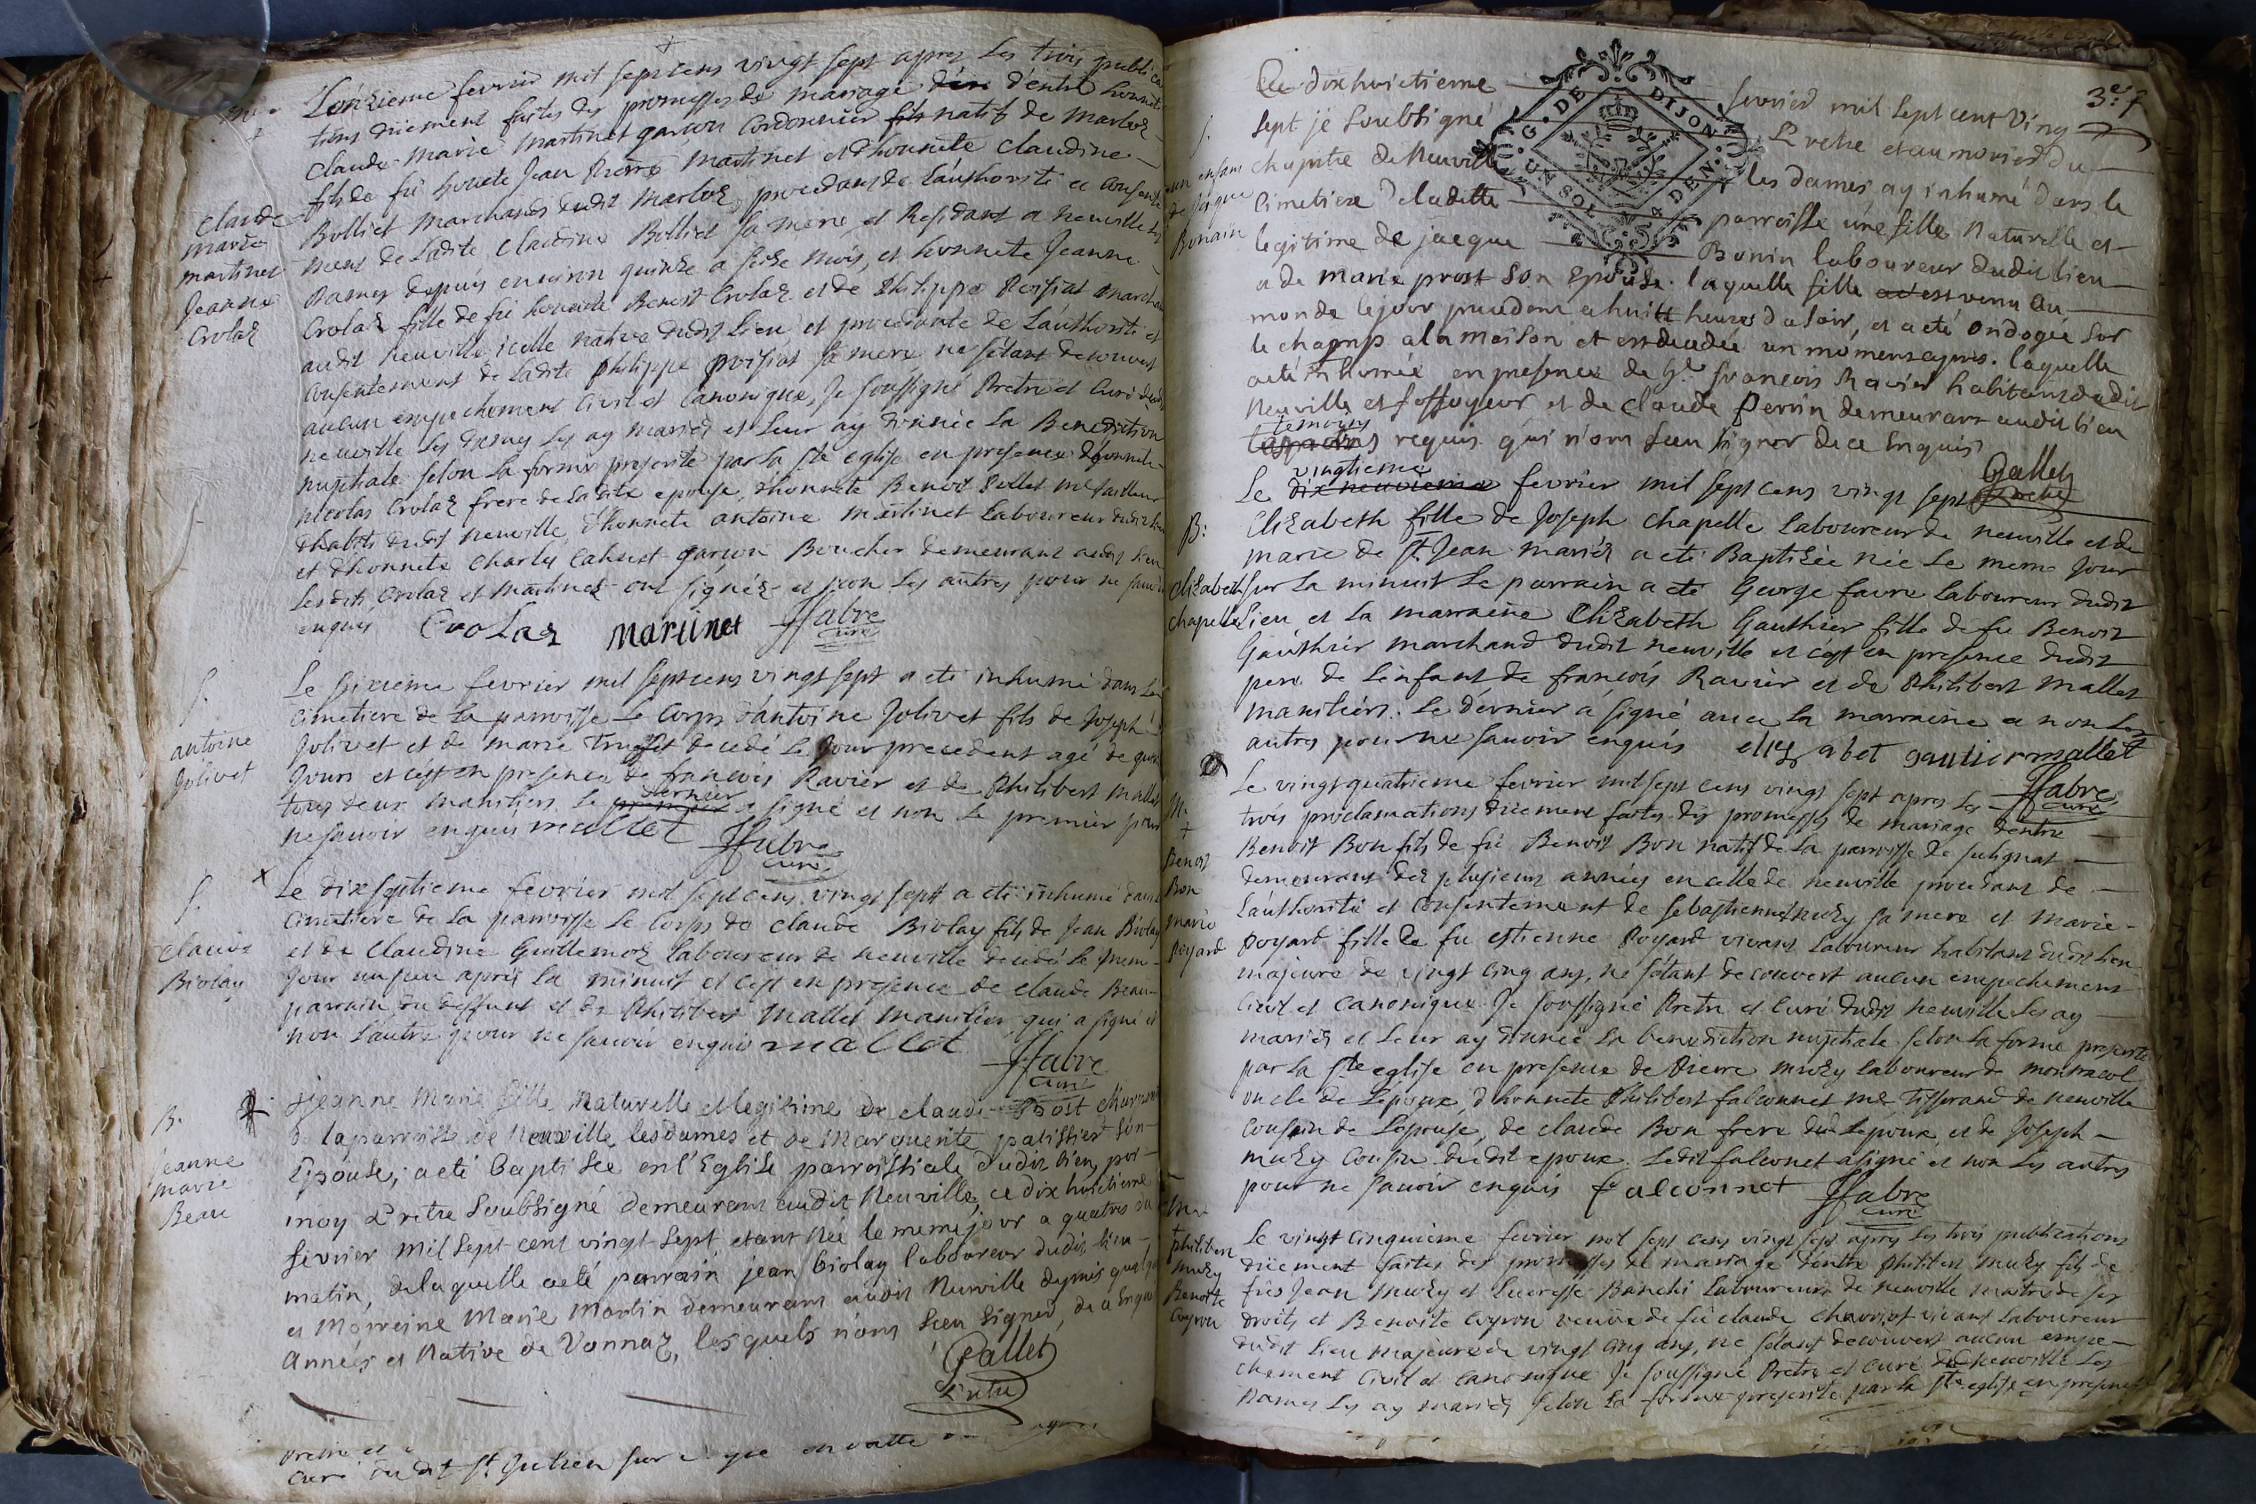 Lonzieme fevrier mil sept cens vingt sept apres les trois publica
tions düement faites des promesses de mariage d'entre honnete
Claude Marie Martinet garçon Cordonnier natif de Marboz
fils de fû honete Jean Pierre Martinet et d'honnete Claudine
Bolliet Marchands dudit Marboz, procedant de l'authorité et consente
ment de ladite Claudine Bolliet sa mere, et Residant a neuville les
Dames depuis environ quinze a seize mois, et honnete Jeanne
Crolaz fille de fû honnete Benoit Crolaz et de Philippe Poisiat march
audit neuville, icelle native dudit lieu, et procedante de l'authorité et
consentement de ladite philippe poisiat sa mere ne s'etant decouvert
aucun empechement Civil et Canonique, Je soussigné Pretre et Curé dudit
neuville les dames les ay mariés et leur ay donnée la Benediction
nuptiale selon la forme prescrite par la ste eglise en presence d'honnete
nicolas Crolaz frere de ladite epouse, d'honnete Benoit Pellet me tailleur
d'habits dudit neuville, d'honnete antoine Martinet Laboureur dudit lieu
et d'honnete Charles Cahuet garçon Boucher demeurant audit lieu
lesdits Crolaz et Martinet ont signéz et non les autres pour ne savoir
enquis Crolaz Martinet Ffabre
curé
Claude
marie
martinet
Jeanne
Crolaz
S.
antoine
Jolivet
Le sixieme fevrier mil sept cens vingt sept a eté inhumé dans le
cimetiere de la parroisse le Corps d'antoine Jolivet fils de Joseph
Jolivet et de marie decedé le Jour precedent agé de
Jours et c'est en presence de françois Ravier et de Philibert Mallet
tous deux Maniliers le dernier a signé et non le premier pour
ne savoir enquis mallet Ffabre
curé
S.
claude
Biolay
Le dixseptieme fevrier mil sept cens vingt sept a eté inhumé dans
cimetiere de la parroisse le Corps de Claude Biolay fils de Jean Biolay
et de Claudine Guillemoz laboureur de neuville decedé le
Jour un peu aprés la minuit et c'est en presence de claude Beau
parrain du deffunt et de Philibert Mallet Manilier qui a signé et
non l'autre pour ne savoir enquis mallet
Ffabre
curé
B.
jeanne
marie
Beau
jeanne Marie fille Naturelle et legitime de claude
de la parroisse de Neuville les dames et de Marguerite patissier son
Epouse, a eté baptisée en l'Eglise parroissiale dudit lieu, par
moy P'retre Soubsigné demeurant audit Neuville, ce dix huictieme
fevrier mil sept cent vingt sept etant née le meme jour a quatres du
matin, de laquelle a eté parrain jean biolay laboureur dudit lieu
et Marreine Marie Martin demeurant audit Neuville depuis quelque
Années et Native de Vonnaz, lesquels n'ont sceu signer, de ce Enquis
Gallet
P'retre
pretre et
curé dudit St Julien sur
3e f
G. DE DIJON
UN SOL 4 DEN.
S.
un enfans
de jacque
Bonain
Ce dixhuictieme fevrier mil sept cent Ving
Sept je Soubsigné P'retre et aumonier du
chapitre de Neuville les dames ay inhumé dans le
Cimetiere de ladite parroisse une fille Naturelle et
legitime de jacque Bonin laboureur dudit lieu
a de marie prost son Epouse. laquelle fille est venu au
monde le jour precedent a huitt heures du soir, et a eté ondogée sur
le champ a la maison et est decedée un moment apres. laquelle
a eté inhumée en presence de françois Ravier habitant dudit
Neuville et fossoyeur et de Claude Perrin demeurant audit lieu
temoins requis qui n'ont sceu signer de ce Enquis
Gallet
B:
Elizabeth
chapelle
Le vingtieme fevrier mil sept cens vingt sept
Elizabeth fille de Joseph Chapelle laboureur de neuville et de
marie de St. Jean mariéz a eté Baptisée née le meme Jour
sur la minuit le parrain a eté George favre laboureur dudit
lieu et la marraine Elizabeth Gauthier fille de fû Benoit
Gauthier marchand dudit neuville et c'est en presence dudit
pere de l'enfant de françois Ravier et de Philibert Mallet
maniliers. le dernier a signé avec la marraine et non les
autres pour ne savoir enquis elizabet gautier mallet
Ffabre
curé
M.
Benoit
Bon
marie
Poyard
Le vingt quatrieme fevrier mil sept cens vingt sept apres les
trois proclamations düement faites des promesses de mariage dentre
Benoit Bon fils de fû Benoit Bon natif de la parroisse de sulignat
demeurant dez plusieurs années en celle de neuville procedant de
l'authorité et consentement de sebastienne muzy sa mere et marie
poyard fille de fu estienne Poyard vivant laboureur habitant dudit lieu
majeure de vingt cinq ans, ne s'etant decouvert aucun empechement
Civil et canonique Je soussigné Pretre et Curé dudit neuville les ay
mariés et leur ay donnée la benediction nuptiale selon la forme prescrite
par la ste eglise en presence de Pierre muzy laboureur de montracol
oncle de l'epoux, d'honnete Philibert falconnet me Tisserand de neuville
cousin de l'epouse, de claude Bon frere dud. epoux et de Joseph
muzy cousin dudit epoux. ledit falconnet a signé et non les autres
pour ne savoir enquis falconnet Ffabre
curé
philibert
muzy
Benoite
Coyron
Le vingt cinquieme fevrier mil sept cens vingt sept apres les trois publications
düement faites des promesses de mariage d'entre Philibert muzy fils de
fûs Jean muzy et Lucresse Banchi Laboureurs de neuville maitre de ses
droits et Benoite Coyron veuve de fû claude Chavriot vivant Laboureur
dudit lieu majeure de vingt cinq ans, ne s'etant decouvert aucun empe-
chement Civil et canonique Je soussigné Pretre et curé de Neuville les
Dames les ay mariés selon la forme prescrite par la Ste eglise en presence